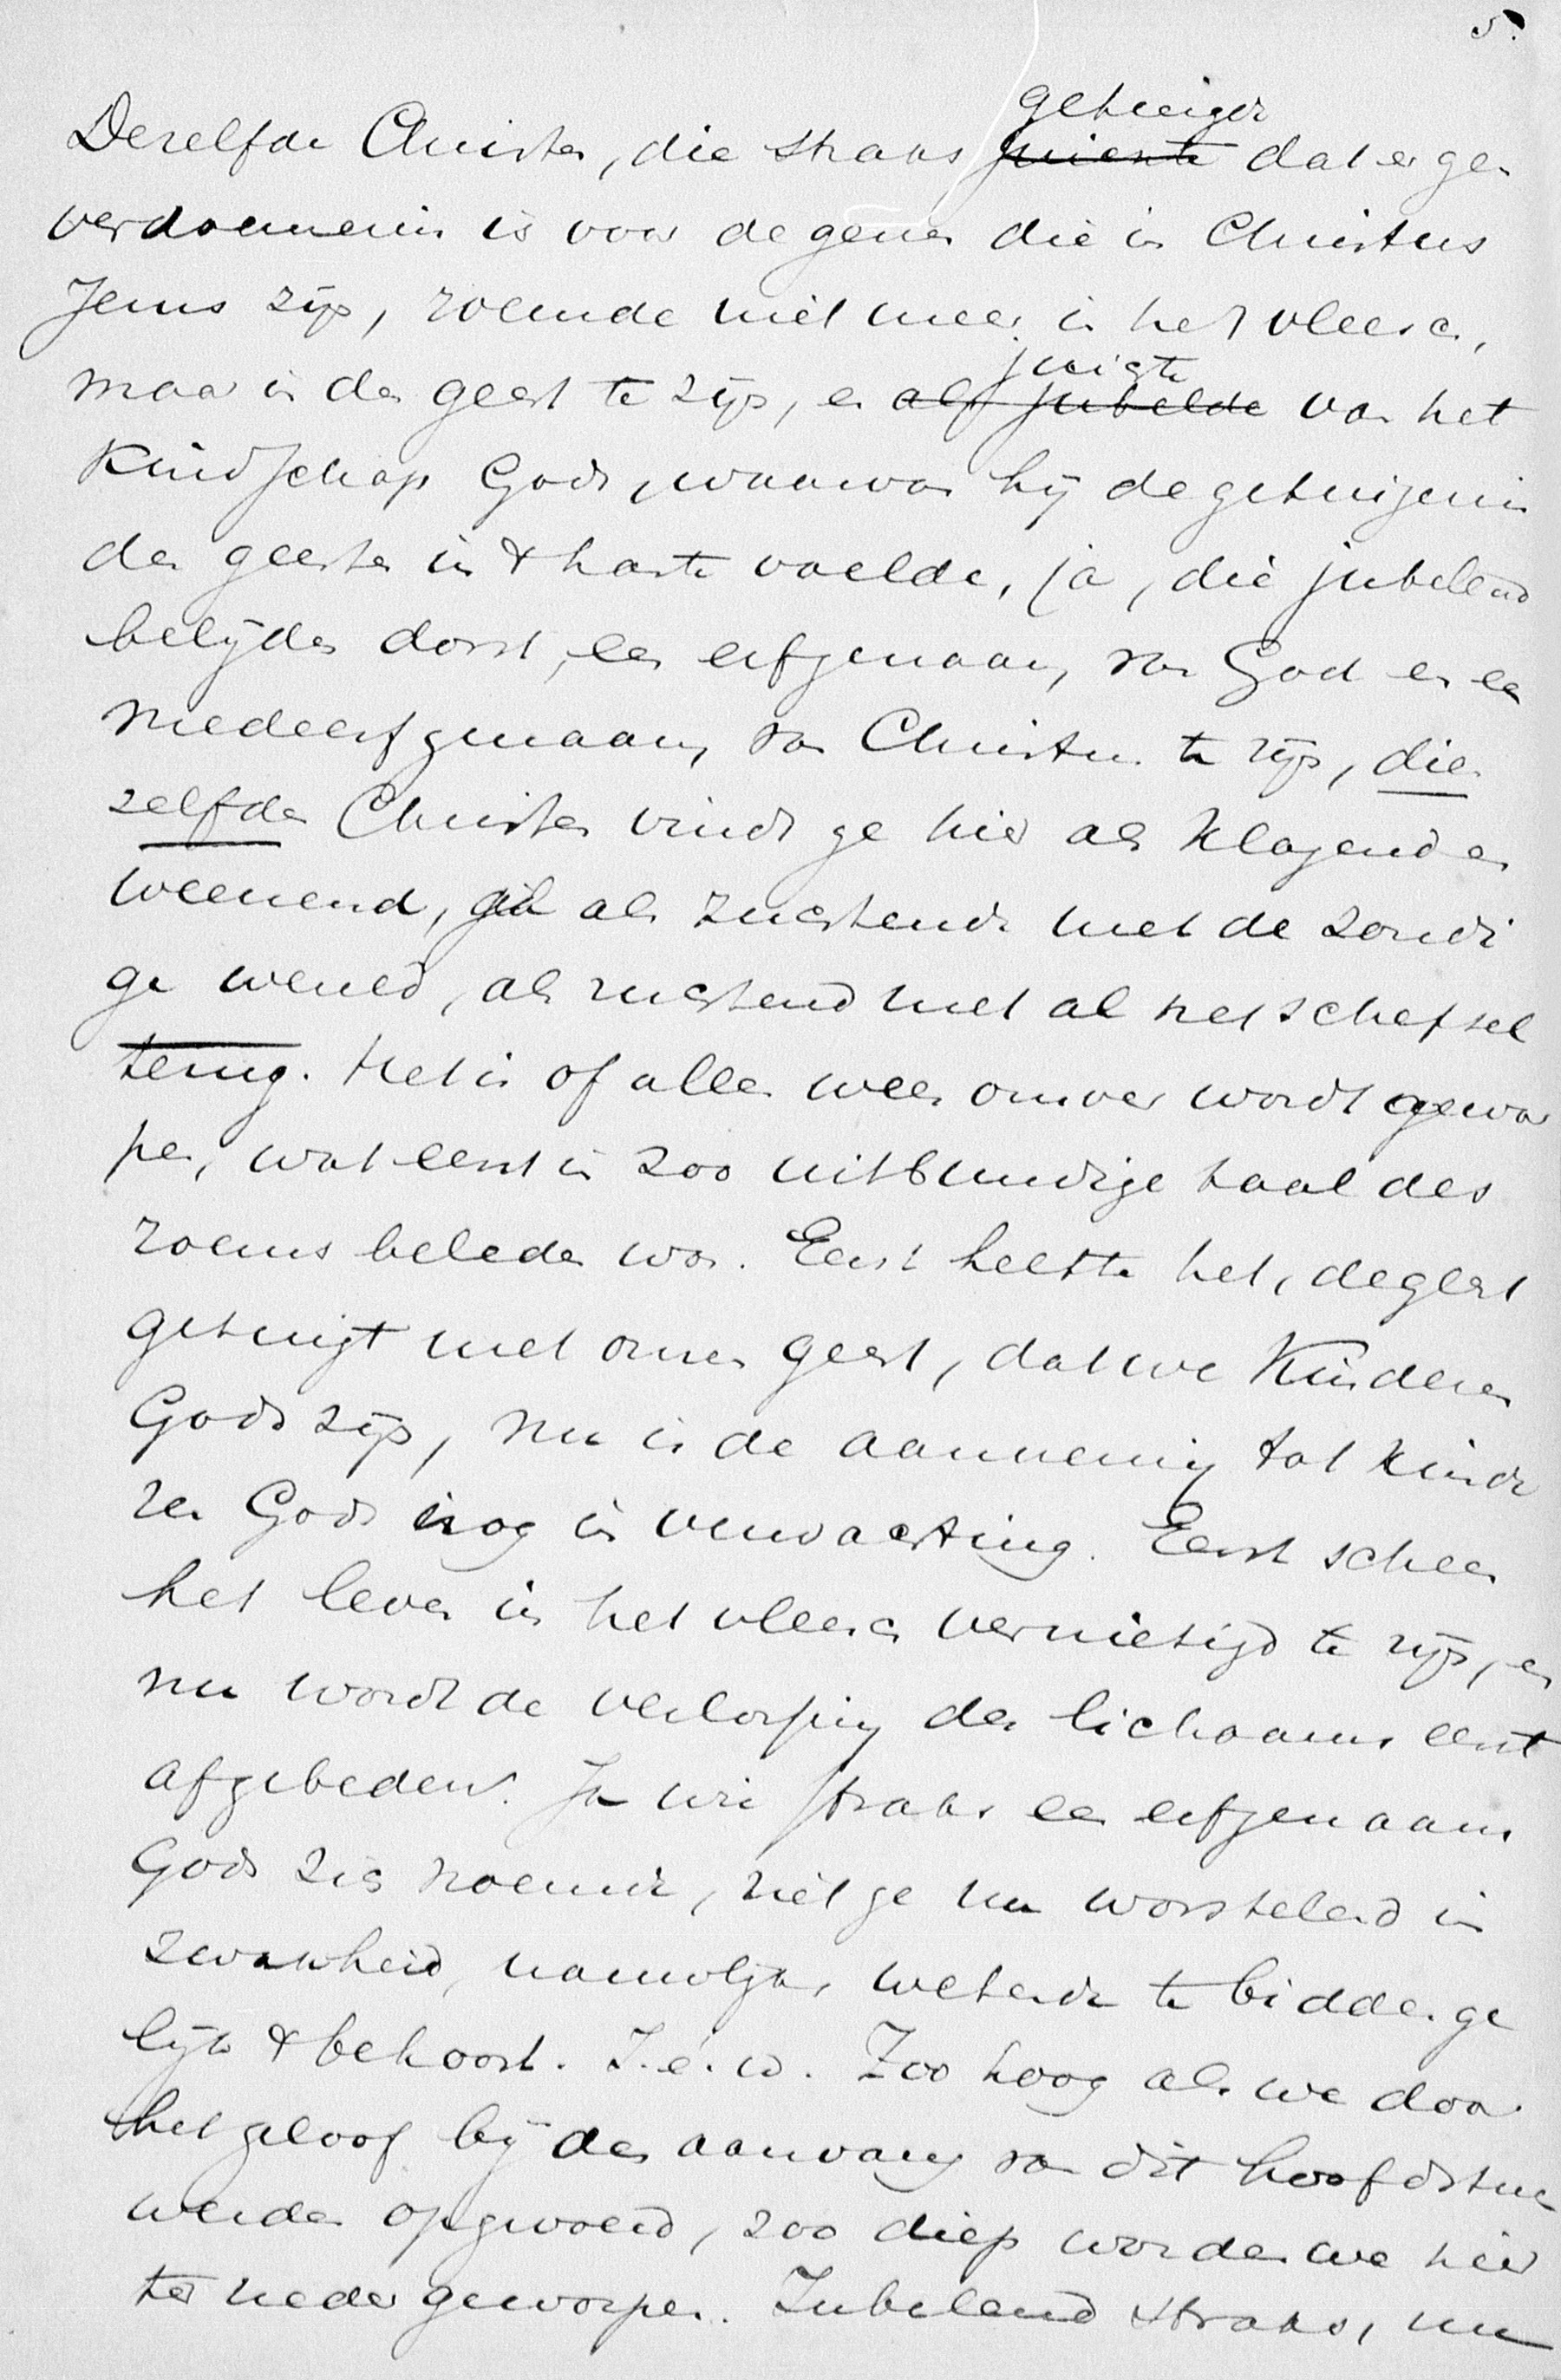 5.
getuigde
Dezelfde Christen, die straks juichte dat er geen
verdoemenis is voor degenen die in Christus
Jezus zijn, roemde niet meer in het vleesch,
juichte
maar in den geest te zijn, en als jubelde van het
Kindschap Gods, waarvan hij de getuigenis
des geestes in 't harte voelde, ja, die jubelend
belijden dorst, een erfgenaam van God en een
medeerfgenaam van Christus te zijn, dien
zelfden Christen vindt ge hier als klagend en
weenend, als zuchtende met de zondi
ge wereld, als zuchtend met al het schepsel
terug. Het is of alles weer omver wordt gewor
pen, wat eerst in zoo uitbundige taal des
roems beleden was. Eerst heette het, de geest
getuigt met onzen geest, dat we Kinderen
Gods zijn, nu is de aanneming tot kinde
ren Gods nog in verwachting. Eerst scheen
het leven in het vleesch vernietigd te zijn, en
nu wordt de verlossing des lichaams eerst
afgebeden. Ja wie straks een erfgenaam
Gods zich noemde, ziet ge nu worstelend in
zwakheid, nauwlijks wetende te bidden ge
lijk 't behoort. I.é.w. Zoo hoog als we door
het geloof bij den aanvang van dit hoofdstuk
werden opgevoerd, zoo diep worden we hier
ter neder geworpen. Jubelend straks, nu